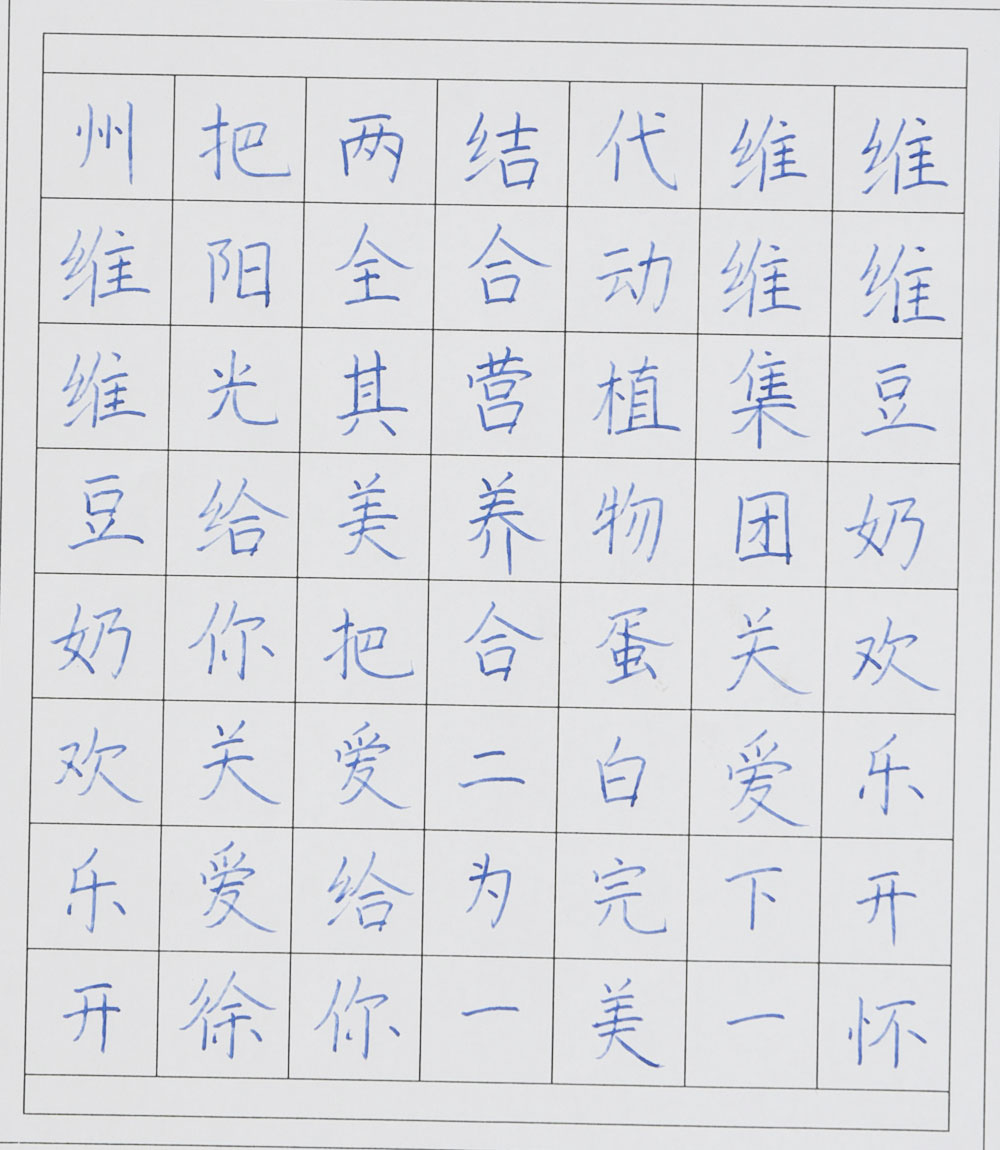 维维豆奶欢乐开怀
维维集团关爱下一
代动植物蛋白完美
结合营养合二为一
两全其美把爱给你
把阳光给你关爱徐
州维维豆奶欢乐开